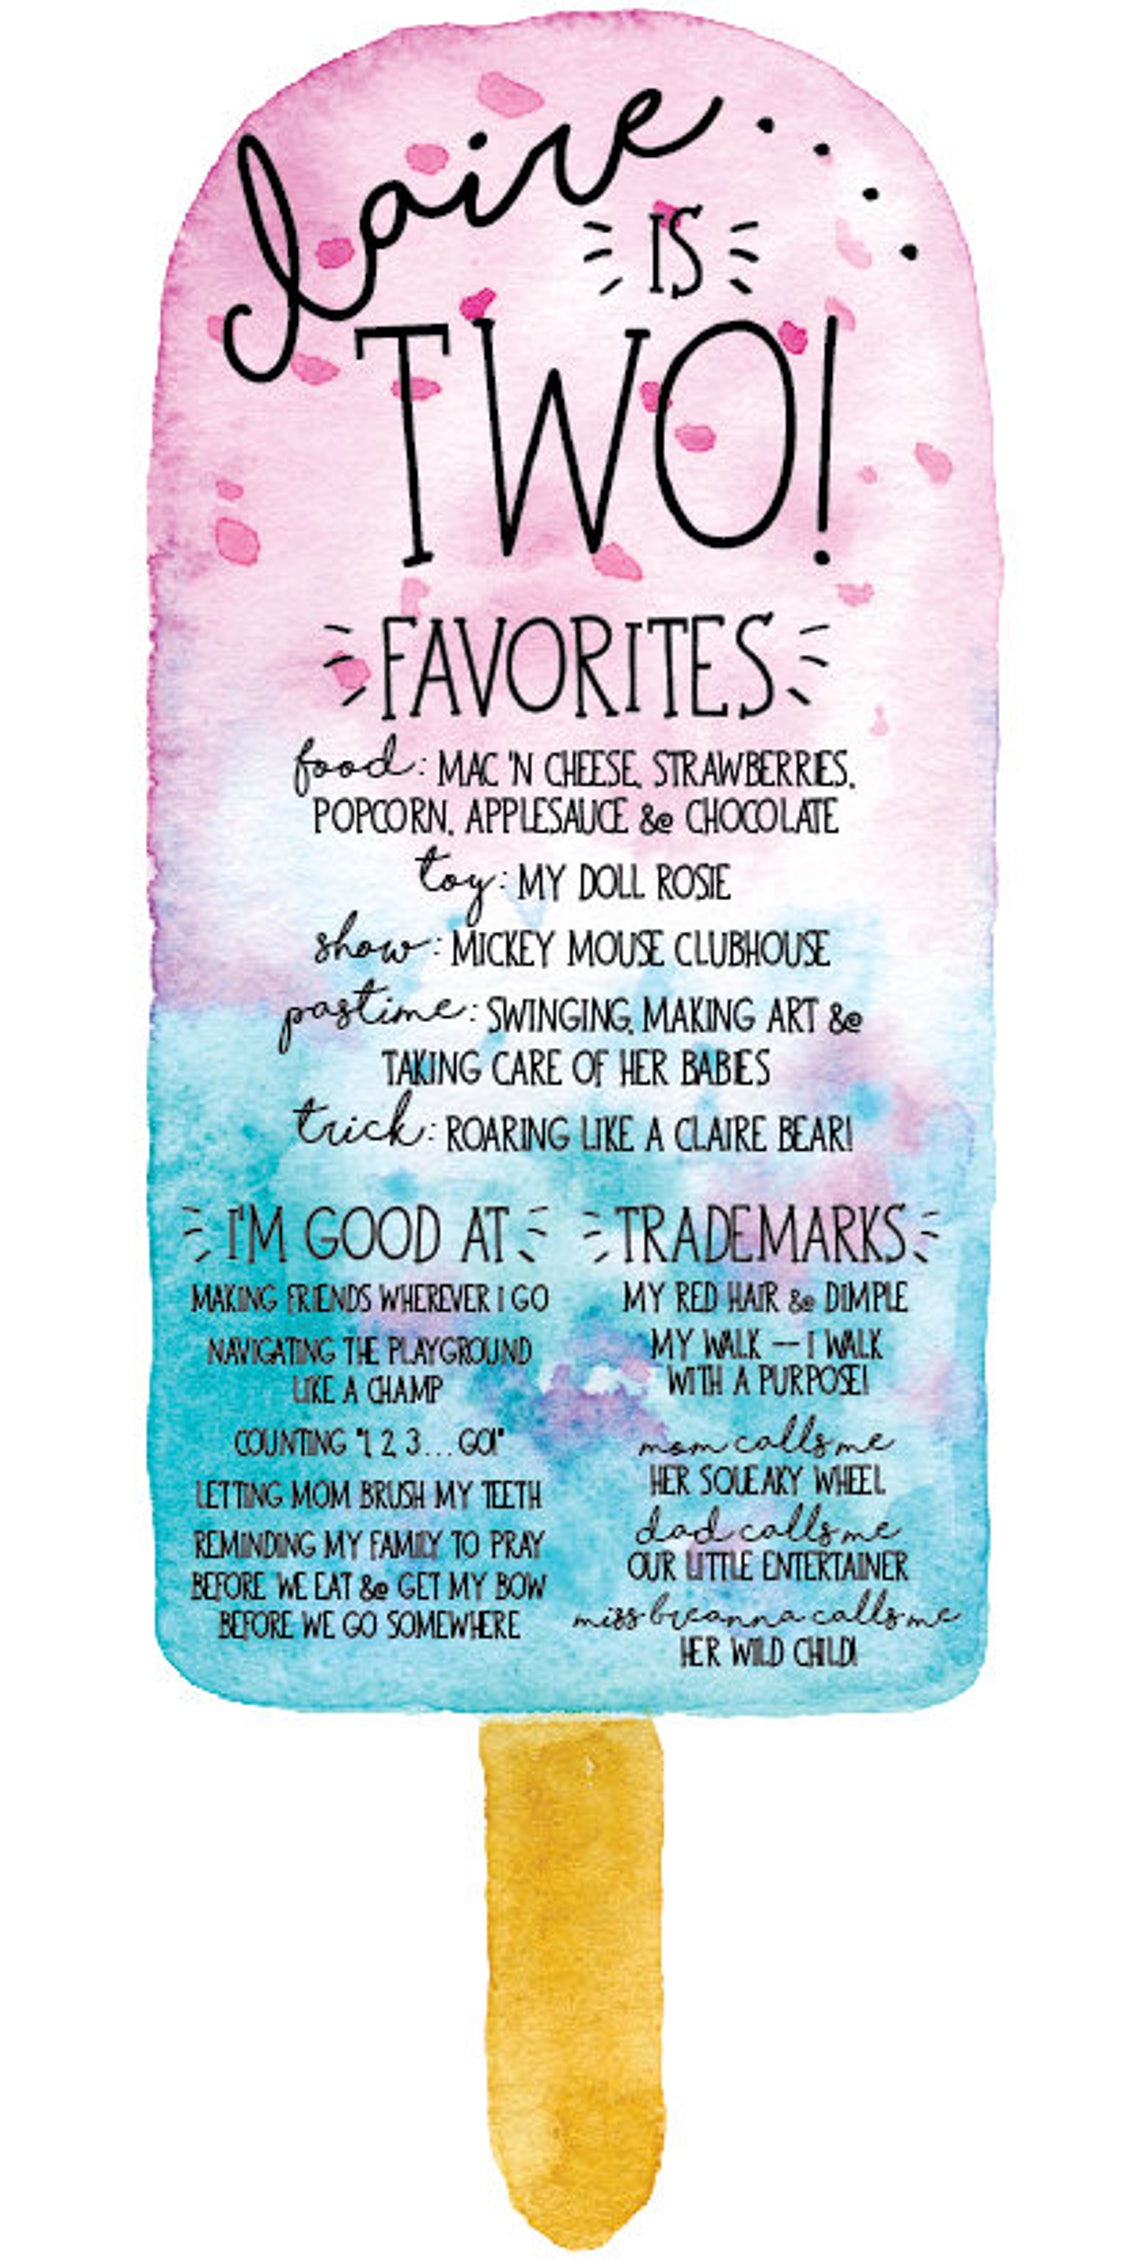 Claire....
IS
TWO!
FAVORITES
food: MAC 'N CHEESE, STRAWBERRIES,
POPCORN, APPLESAUCE & CHOCOLATE
toy: MY DOLL ROSIE
show: MICKEY MOUSE CLUBHOUSE
pastime: SWINGING, MAKING ART &
TAKING CARE OF HER BABIES
trick: ROARING LIKE A CLAIRE BEAR!
I'M GOOD AT
MAKING FRIENDS WHEREVER I GO
NAVIGATING THE PLAYGROUND
LIKE A CHAMP
COUNTING "1, 2, 3 . . . GO!"
LETTING MOM BRUSH MY TEETH
REMINDING MY FAMILY TO PRAY
BEFORE WE EAT & GET MY BOW
BEFORE WE GO SOMEWHERE
TRADEMARKS
MY RED HAIR & DIMPLE
MY WALK -- I WALK
WITH A PURPOSE!
mom calls me
HER SQUEAKY WHEEL
dad calls me
OUR LITTLE ENTERTAINER
miss breanna calls me
HER WILD CHILD!